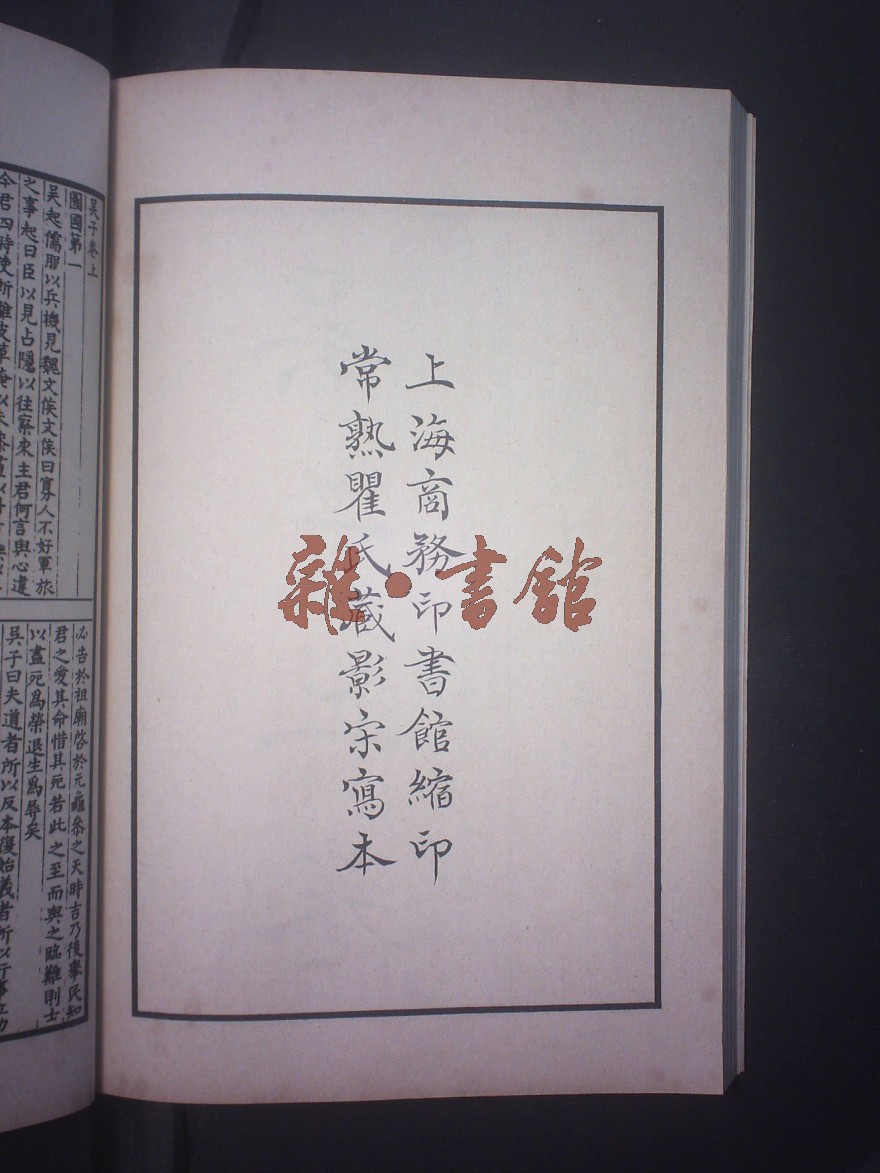 上海商務印書館縮印
常熟瞿氏藏影宋寫本
雜·書館
吳子卷上
圖國第一
吳起儒服以兵機見魏文侯文侯曰寡人不好軍旅
之事起曰臣以見占隱以往察來主君何言與心違
今君四時使斬離皮革掩以朱
必告於祖廟啓於元龜參之天時吉乃後舉民知
君之愛其命惜其死若此之至而與之臨難則士
以盡死爲榮退生爲辱矣
吳子曰夫道者所以反本復始義者所以行事立功